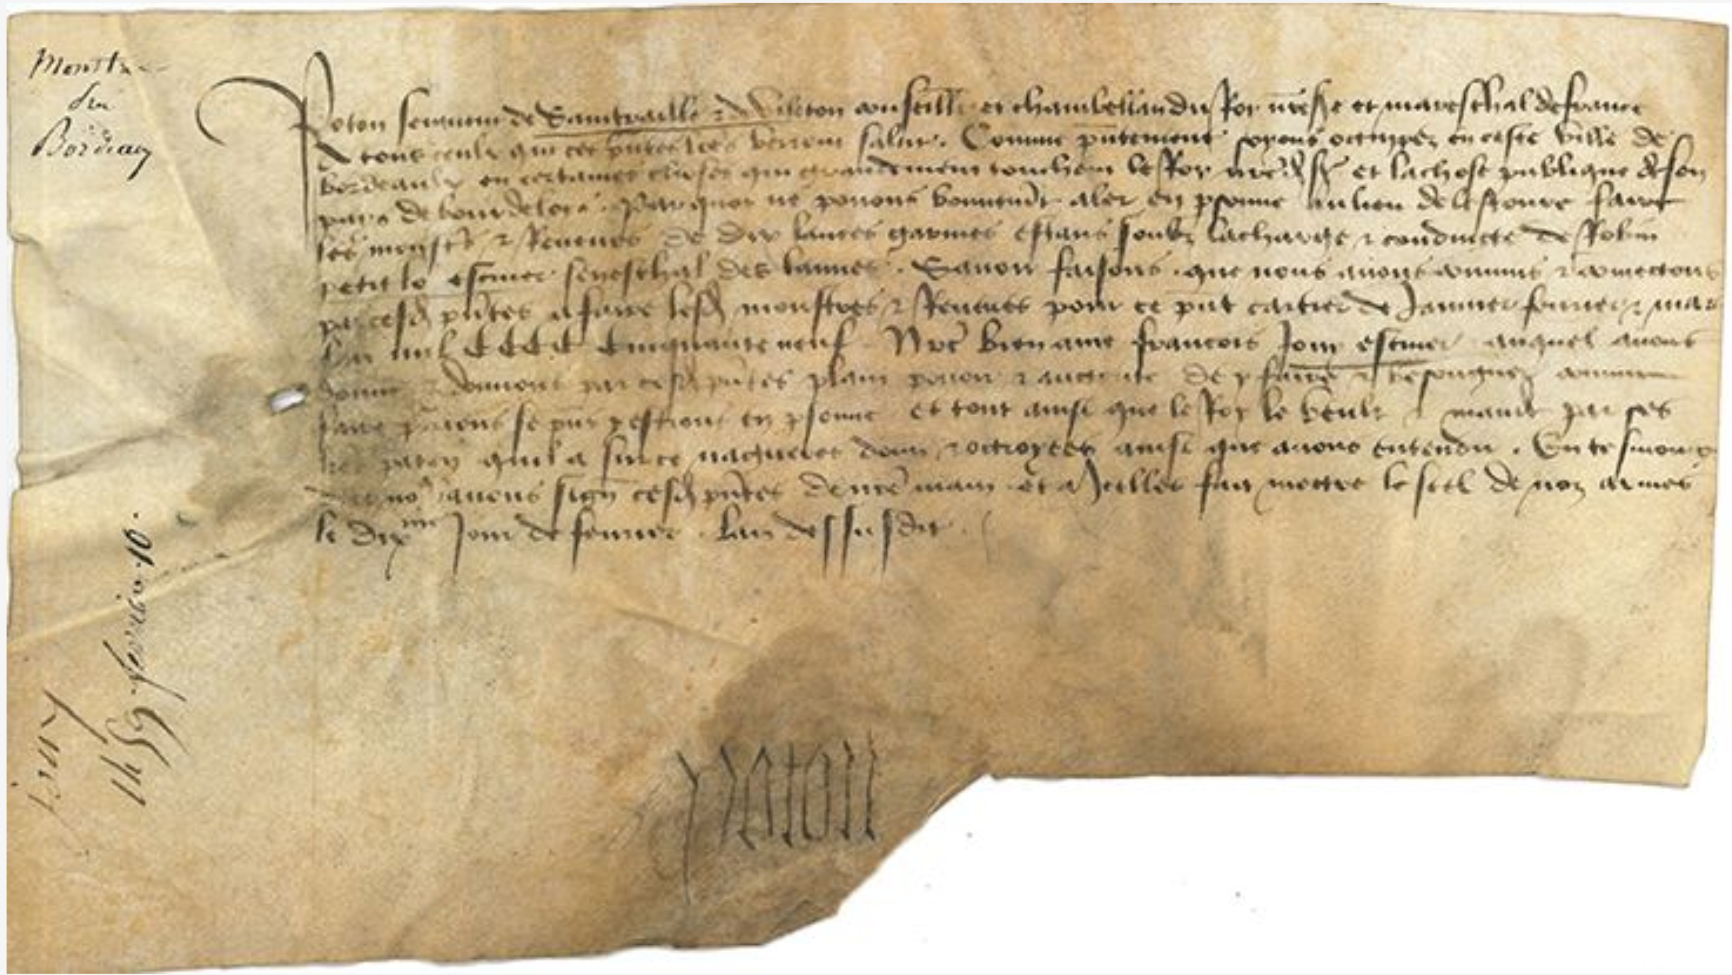 Monstre
de
Bordeaux
Poton seigneur de Saintraille & de conseill et chambellan du Roy nre sre et mareschal de france
A tous ceulx qui ces pntes lres verront salut. Comme pntement soyons occuppez en ceste ville de
bordeaulx en certaines choses qui grandement touchent le Roy nre d sr et la chose publique de son
pays de bourdelois. Par quoy ne povons bonnement aler en psonne au lieu de faire
les monstres & Reveues de dix lances garnies estans soubz la charge & conduicte de Robin
petit lo escuier seneschal des lannes. Savoir faisons que nous avons commis & commectons
par cesd pntes a faire lesd monstres & Reveues pour ce pnt cartier de Janvier fevrier & mars
lan mil CCCC Cinquante neuf. Nre bien ame francois Jour escuier auquel avons
donne & donnons par cesd pntes plain povoir & auctorite de y faire & besongner comme
faire psonne et tout ainsi que le Roy le veult & mande par ses
lres paten quil a sur ce nagueres donn & octroyees ainsi que avons entendu. En tesmoing
avons sign cesd pntes de nre main et a Icelles fait mettre le seel de noz armes
le dix Jour de fevrier. lan dessusdit.
Poton
1459 fevrier 16.